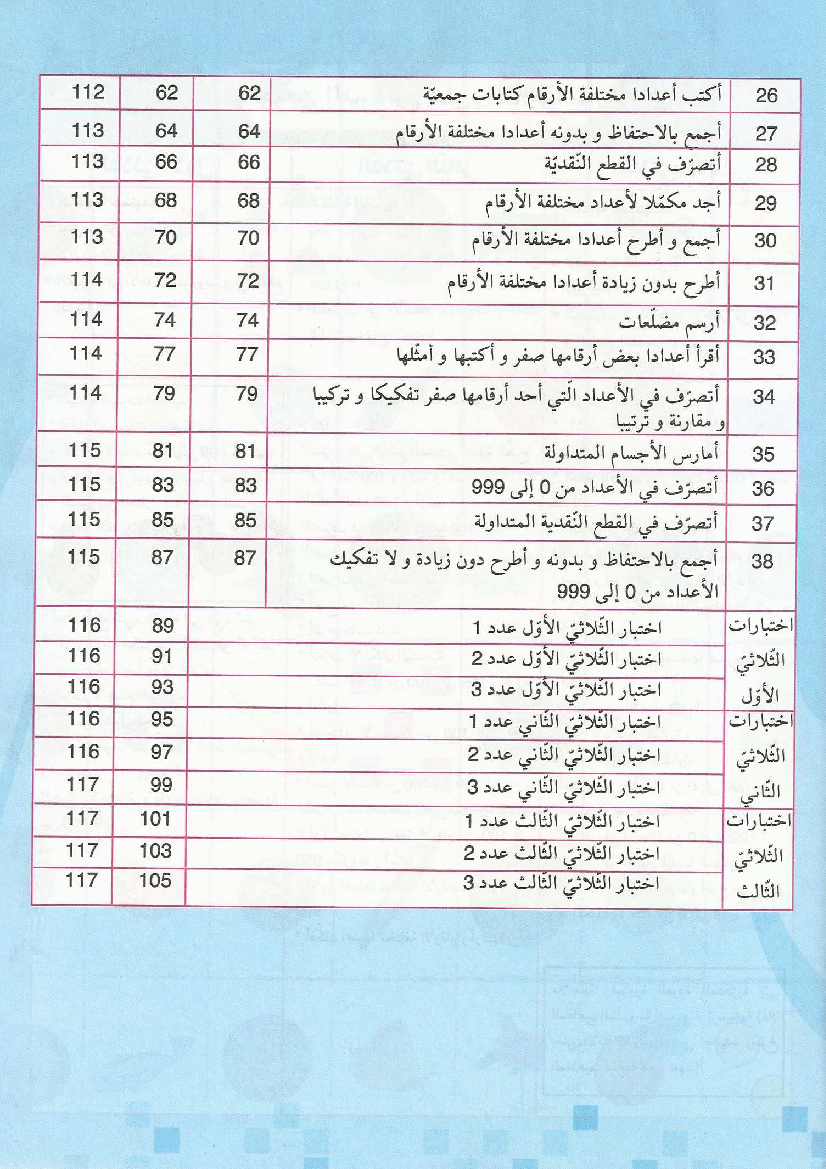 26 أكتب أعدادا مختلفة الأرقام كتابات جمعيّة 62 62 112
27 أجمع بالاحتفاظ و بدونه أعدادا مختلفة الأرقام 64 64 113
28 أتصرّف في القطع النّقديّة 66 66 113
29 أجد مكمّلا لأعداد مختلفة الأرقام 68 68 113
30 أجمع و أطرح أعدادا مختلفة الأرقام 70 70 113
31 أطرح بدون زيادة أعدادا مختلفة الأرقام 72 72 114
32 أرسم مضلّعات 74 74 114
33 أقرأ أعدادا بعض أرقامها صفر و أكتبها و أمثّلها 77 77 114
34 أتصرّف في الأعداد الّتي أحد أرقامها صفر تفكيكا و تركيبا 79 79 114
و مقارنة و ترتيبا
35 أمارس الأجسام المتداولة 81 81 115
36 أتصرّف في الأعداد من 0 إلى 999 83 83 115
37 أتصرّف في القطع النّقدية المتداولة 85 85 115
38 أجمع بالاحتفاظ و بدونه و أطرح دون زيادة و لا تفكيك 87 87 115
الأعداد من 0 إلى 999
اختبارات اختبار الثّلاثيّ الأوّل عدد 1 89 116
الثّلاثيّ اختبار الثّلاثيّ الأوّل عدد 2 91 116
الأوّل اختبار الثّلاثيّ الأوّل عدد 3 93 116
اختبارات اختبار الثّلاثيّ الثّاني عدد 1 95 116
الثّلاثيّ اختبار الثّلاثيّ الثّاني عدد 2 97 116
الثّاني اختبار الثّلاثيّ الثّاني عدد 3 99 117
اختبارات اختبار الثّلاثيّ الثّالث عدد 1 101 117
الثّلاثيّ اختبار الثّلاثيّ الثّالث عدد 2 103 117
الثّالث اختبار الثّلاثي الثّالث عدد 3 105 117